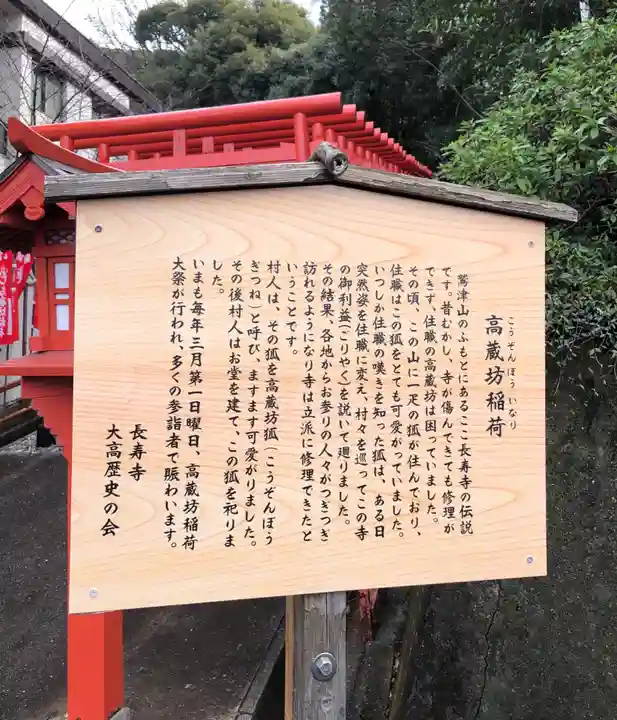 こうぞんぼういなり
高蔵坊稲荷
鷲津山のふもとにあるここ長寿寺の伝説
です。昔むかし、寺が傷んできても修理が
できず、住職の高蔵坊は困っていました。
その頃、この山に一疋の狐が住んでおり、
住職はこの狐をとても可愛がっていました。
いつしか住職の嘆きを知った狐は、ある日
突然姿を住職に変え、村々を巡ってこの寺
の御利益(ごりやく)を説いて廻りました。
その結果、各地からお参りの人々がつぎつぎ
訪れるようになり寺は立派に修理できたと
いうことです。
村人は、その狐を高蔵坊狐(こうぞんぼう
ぎつね)と呼び、ますます可愛がりました。
その後村人はお堂を建て、この狐を祀りま
した。
いまも毎年三月第一日曜日、高蔵坊稲荷
大祭が行われ、多くの参詣者で賑わいます。
長寿寺
大高歴史の会